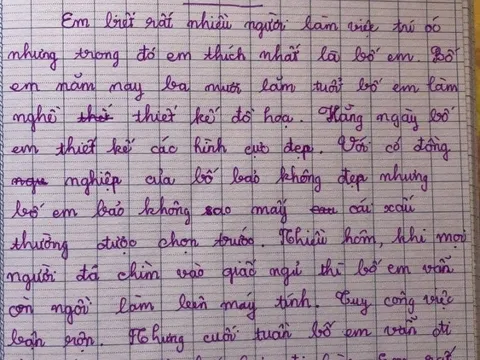 Em biết rất nhiều người làm việc trí óc
nhưng trong đó em thích nhất là bố em. Bố
em năm nay ba mươi lăm tuổi bố em làm
nghề thiết kế đồ họa. Hằng ngày bố
em thiết kế các hình cực đẹp. Với cô đồng
nghiệp của bố bảo không đẹp nhưng
bố em bảo không sao mấy cái xấu
thường được chọn trước. Nhiều hôm, khi mọi
người đã chìm vào giấc ngủ thì bố em vẫn
còn ngồi làm bên máy tính. Tuy công việc
bận rộn. Nhưng cuối tuần bố em vẫn đi